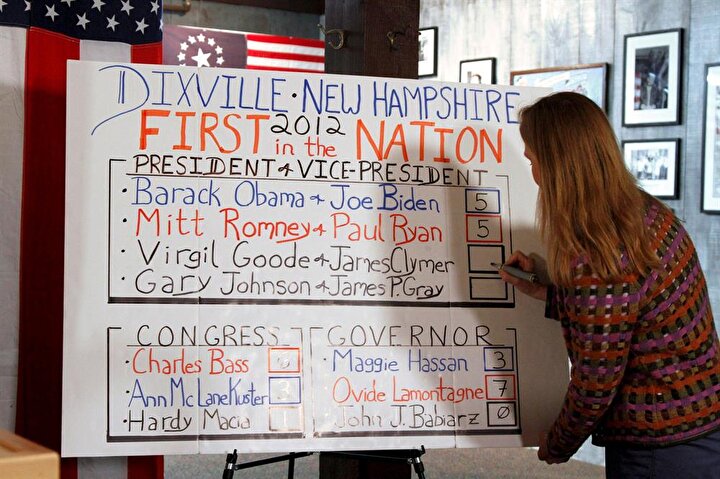 DIXVILLE · NEW HAMPSHIRE
FIRST 2012 in the NATION
PRESIDENT & VICE-PRESIDENT
· Barack Obama & Joe Biden 5
· Mitt Romney & Paul Ryan 5
· Virgil Goode & James Clymer
· Gary Johnson & James P. Gray
CONGRESS
· Charles Bass
· Ann McLane Kuster 3
· Hardy Macia 1
GOVERNOR
· Maggie Hassan 3
· Ovide Lamontagne 7
· John J. Babiarz 0